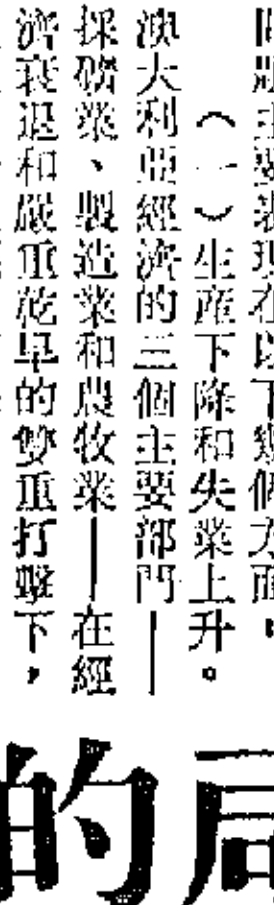 主要表現在以下幾個方面。
（一）生産下降和失業上升。
澳大利亞經濟的三個主要部門——
採礦業、製造業和農牧業——在經
濟衰退和嚴重乾旱的雙重打擊下，
的